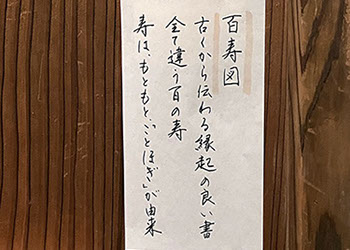 百寿図
古くから伝わる縁起の良い書
全て違う百の寿
寿は、もともと「ことほぎ」が由来